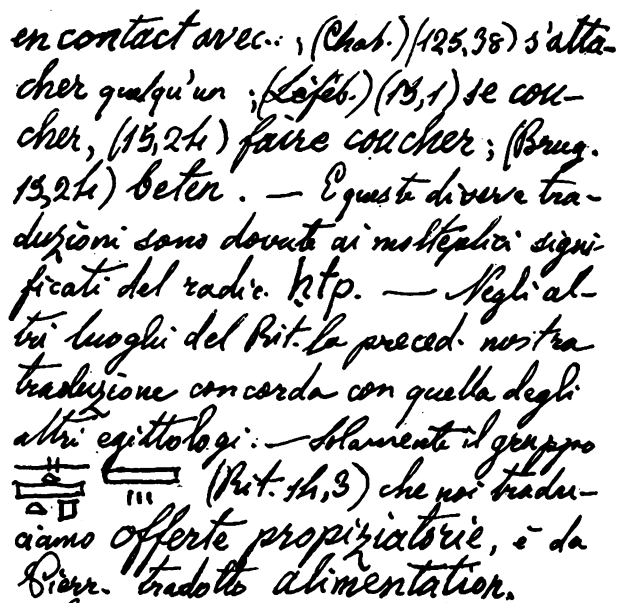 en contact avec.. ; (Chab.) (125,38) s'atta-
cher quelqu'un ; (Léféb.) (15,1) se cou-
cher, (15,24) faire coucher ; (Brug.
15,24) beten. — E queste diverse tra-
duzioni sono dovute ai molteplici signi-
ficati del radic. ḥtp. — Negli al-
tri luoghi del Rit. la preced. nostra
traduzione concorda con quella degli
altri egittologi. — Solamente il gruppo
(Rit. 14,3) che noi tradu-
ciamo offerte propiziatorie, è da
Pierr. tradotto alimentation.